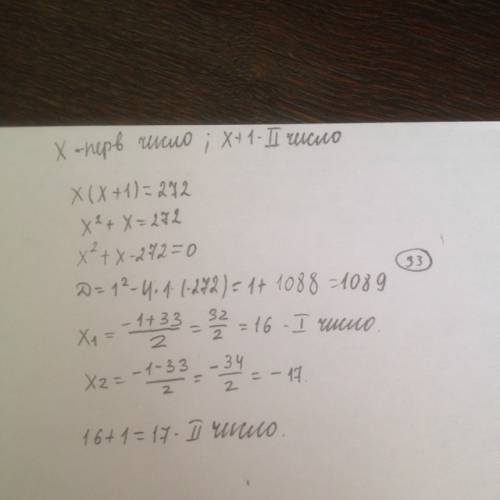 x - перв число ; x+1 - II число
x(x+1)=272
x²+x=272
x²+x-272=0
Д=1²-4·1·(-272)=1+1088=1089
33
x1=(-1+33)/2=32/2=16 - I число.
x2=(-1-33)/2=-34/2=-17.
16+1=17 - II число.